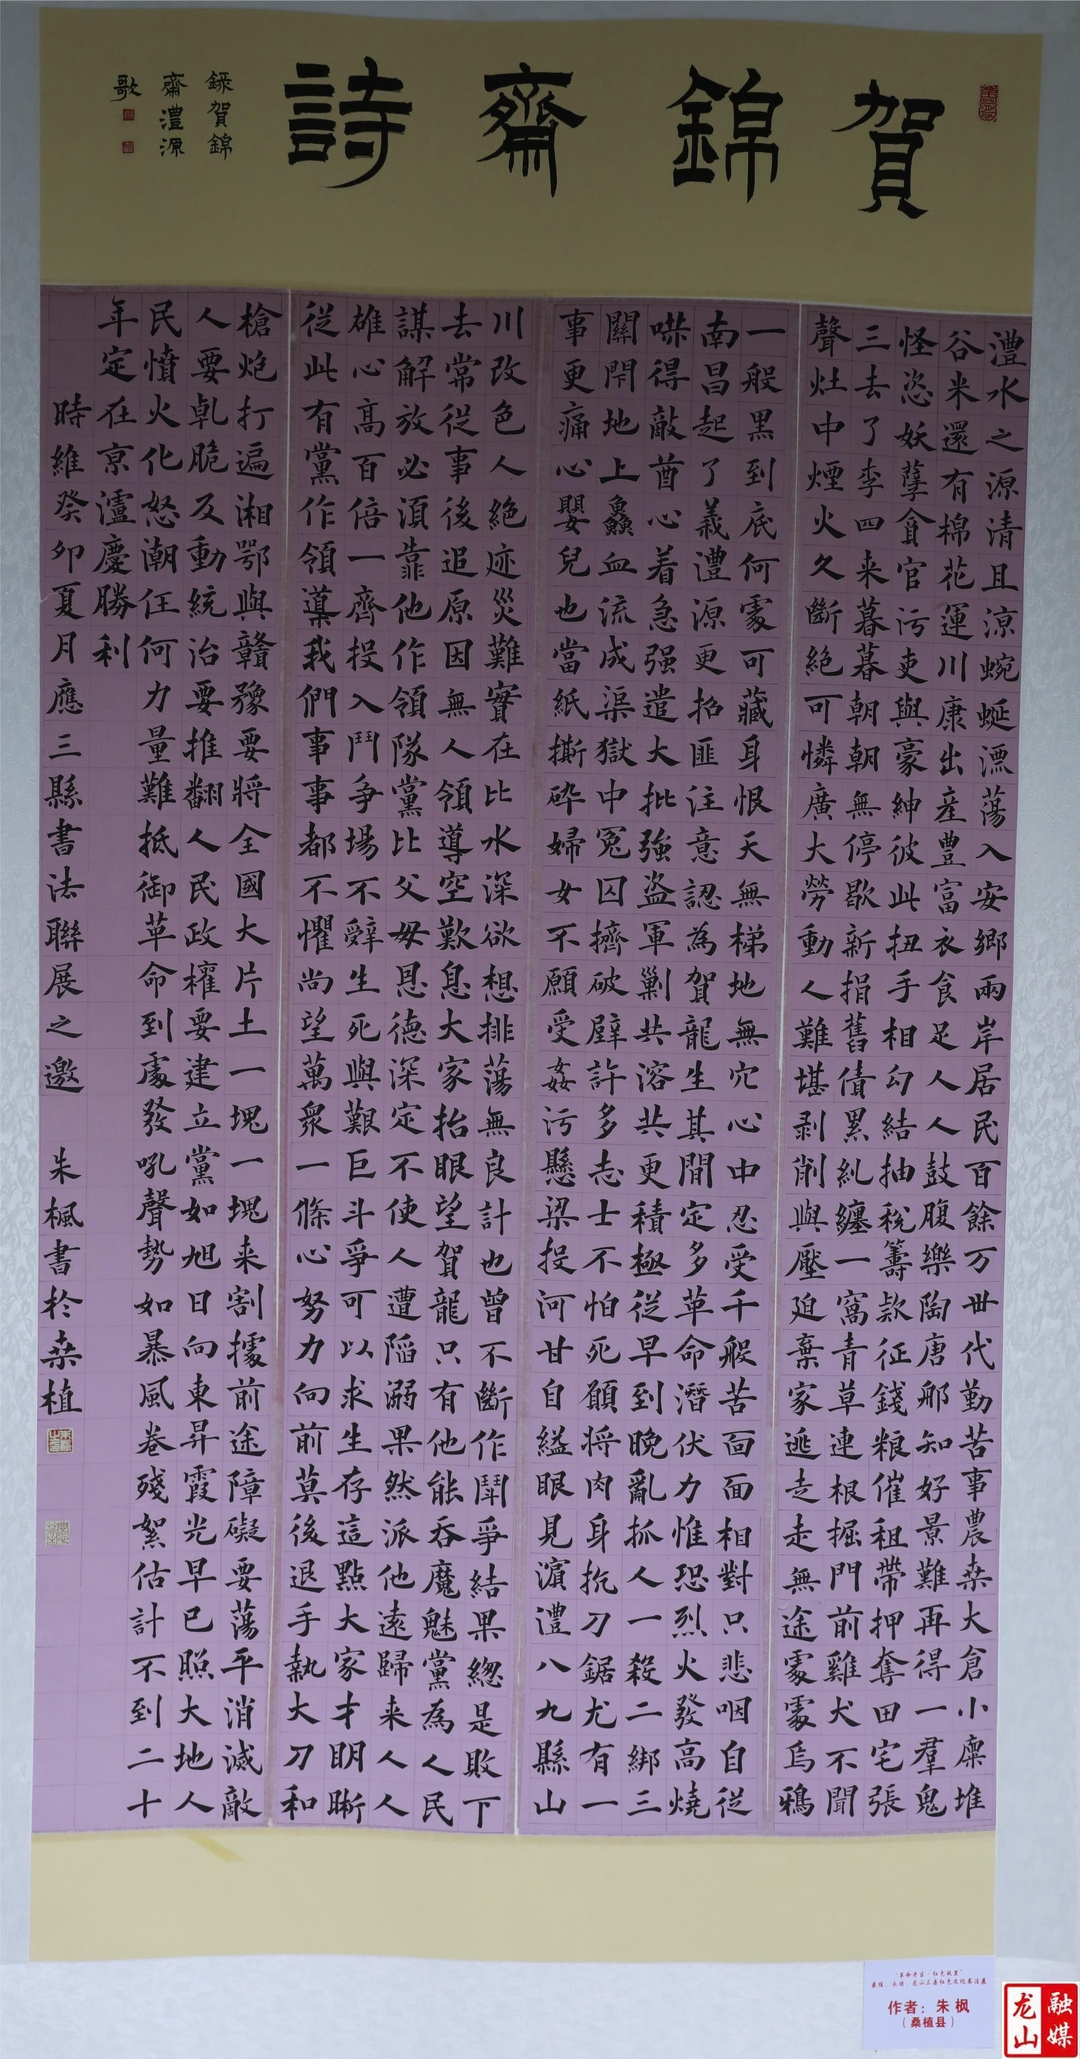 賀錦齋詩
錄賀錦
齋澧源
歌
澧水之源清且涼蜿蜒漂蕩入安鄉兩岸居民百餘万世代勤苦事農桑大倉小廩堆
谷米還有棉花運川康出產豊富衣食足人人鼓腹樂陶唐那知好景難再得一羣鬼
怪恣妖孽貪官污吏與豪紳彼此扭手相勾結抽稅籌款征錢粮催租帶押奪田宅張
三去了李四来暮暮朝朝無停歇新捐舊債累糺纏一窩青草連根掘門前雞犬不聞
聲灶中煙火久斷絕可憐廣大勞動人難堪剥削與壓迫棄家逃走走無途處處烏鴉
一般黑到底何處可藏身恨天無梯地無穴心中忍受千般苦面面相對只悲咽自從
南昌起了義澧源更招匪注意認為賀龍生其間定多革命潛伏力惟恐烈火發高燒
喋得敵酋心着急强遣大批強盜軍剿共溶共更積極從早到晚亂抓人一殺二綁三
關閇地上血流成渠獄中冤囚擠破壁許多志士不怕死願将肉身抗刀鋸尤有一
事更痛心嬰兒也當紙撕碎婦女不願受姦污懸梁投河甘自縊眼見濵澧八九縣山
川改色人絕迹災難實在比水深欲想排蕩無良計也曾不斷作鬪爭結果總是敗下
去常從事後追原因無人領導空歎息大家抬眼望賀龍只有他能吞魔魅黨為人民
謀解放必須靠他作領隊黨比父毋恩德深定不使人遭陷溺果然派他遠歸来人人
雄心高百倍一齊投入鬥争場不辤生死與艱巨斗爭可以求生存這點大家才明晰
從此有黨作領導我們事事都不懼尚望萬衆一條心努力向前莫後退手執大刀和
槍炮打遍湘鄂與贛豫要將全國大片土一塊一塊来割據前途障礙要蕩平消滅敵
人要乹脆反動統治要推翻人民政權要建立黨如旭日向東昇霞光早已照大地人
民憤火化怒潮任何力量難抵御革命到處發吼聲勢如暴風卷殘絮估計不到二十
年定在京瀘慶勝利
時維癸卯夏月應三縣書法聯展之邀 朱楓書於桑植
"革命老区·红色故里"
桑植、永顺、龙山三县红色文化书法展
作者：朱枫
（桑植县）
龙山
融媒